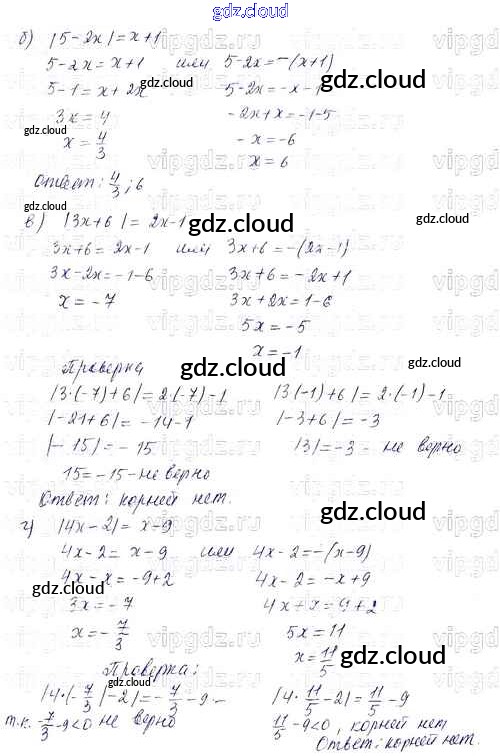 gdz.cloud
б) |5-2x|=x+1
5-2x=x+1 или 5-2x=-(x+1)
5-1=x+2x 5-2x=-x-1
3x=4 -2x+x=-1-5
x=4/3 -x=-6
x=6
Ответ: 4/3; 6
в) |3x+6|=2x-1
3x+6=2x-1 или 3x+6=-(2x-1)
3x-2x=-1-6 3x+6=-2x+1
x=-7 3x+2x=1-6
5x=-5
x=-1
Проверка
|3·(-7)+6|=2·(-7)-1 |3(-1)+6|=2·(-1)-1
|-21+6|=-14-1 |-3+6|=-3
|-15|=-15 |3|=-3 - не верно
15=-15-не верно
Ответ: корней нет.
г) |4x-2|=x-9
4x-2=x-9 или 4x-2=-(x-9)
4x-x=-9+2 4x-2=-x+9
3x=-7 4x+x=9+2
x=-7/3 5x=11
x=11/5
Проверка:
|4·(-7/3)-2|=-7/3-9 |4·11/5-2|=11/5-9
т.к. -7/3-9<0 не верно 11/5-9<0, корней нет
Ответ: корней нет.